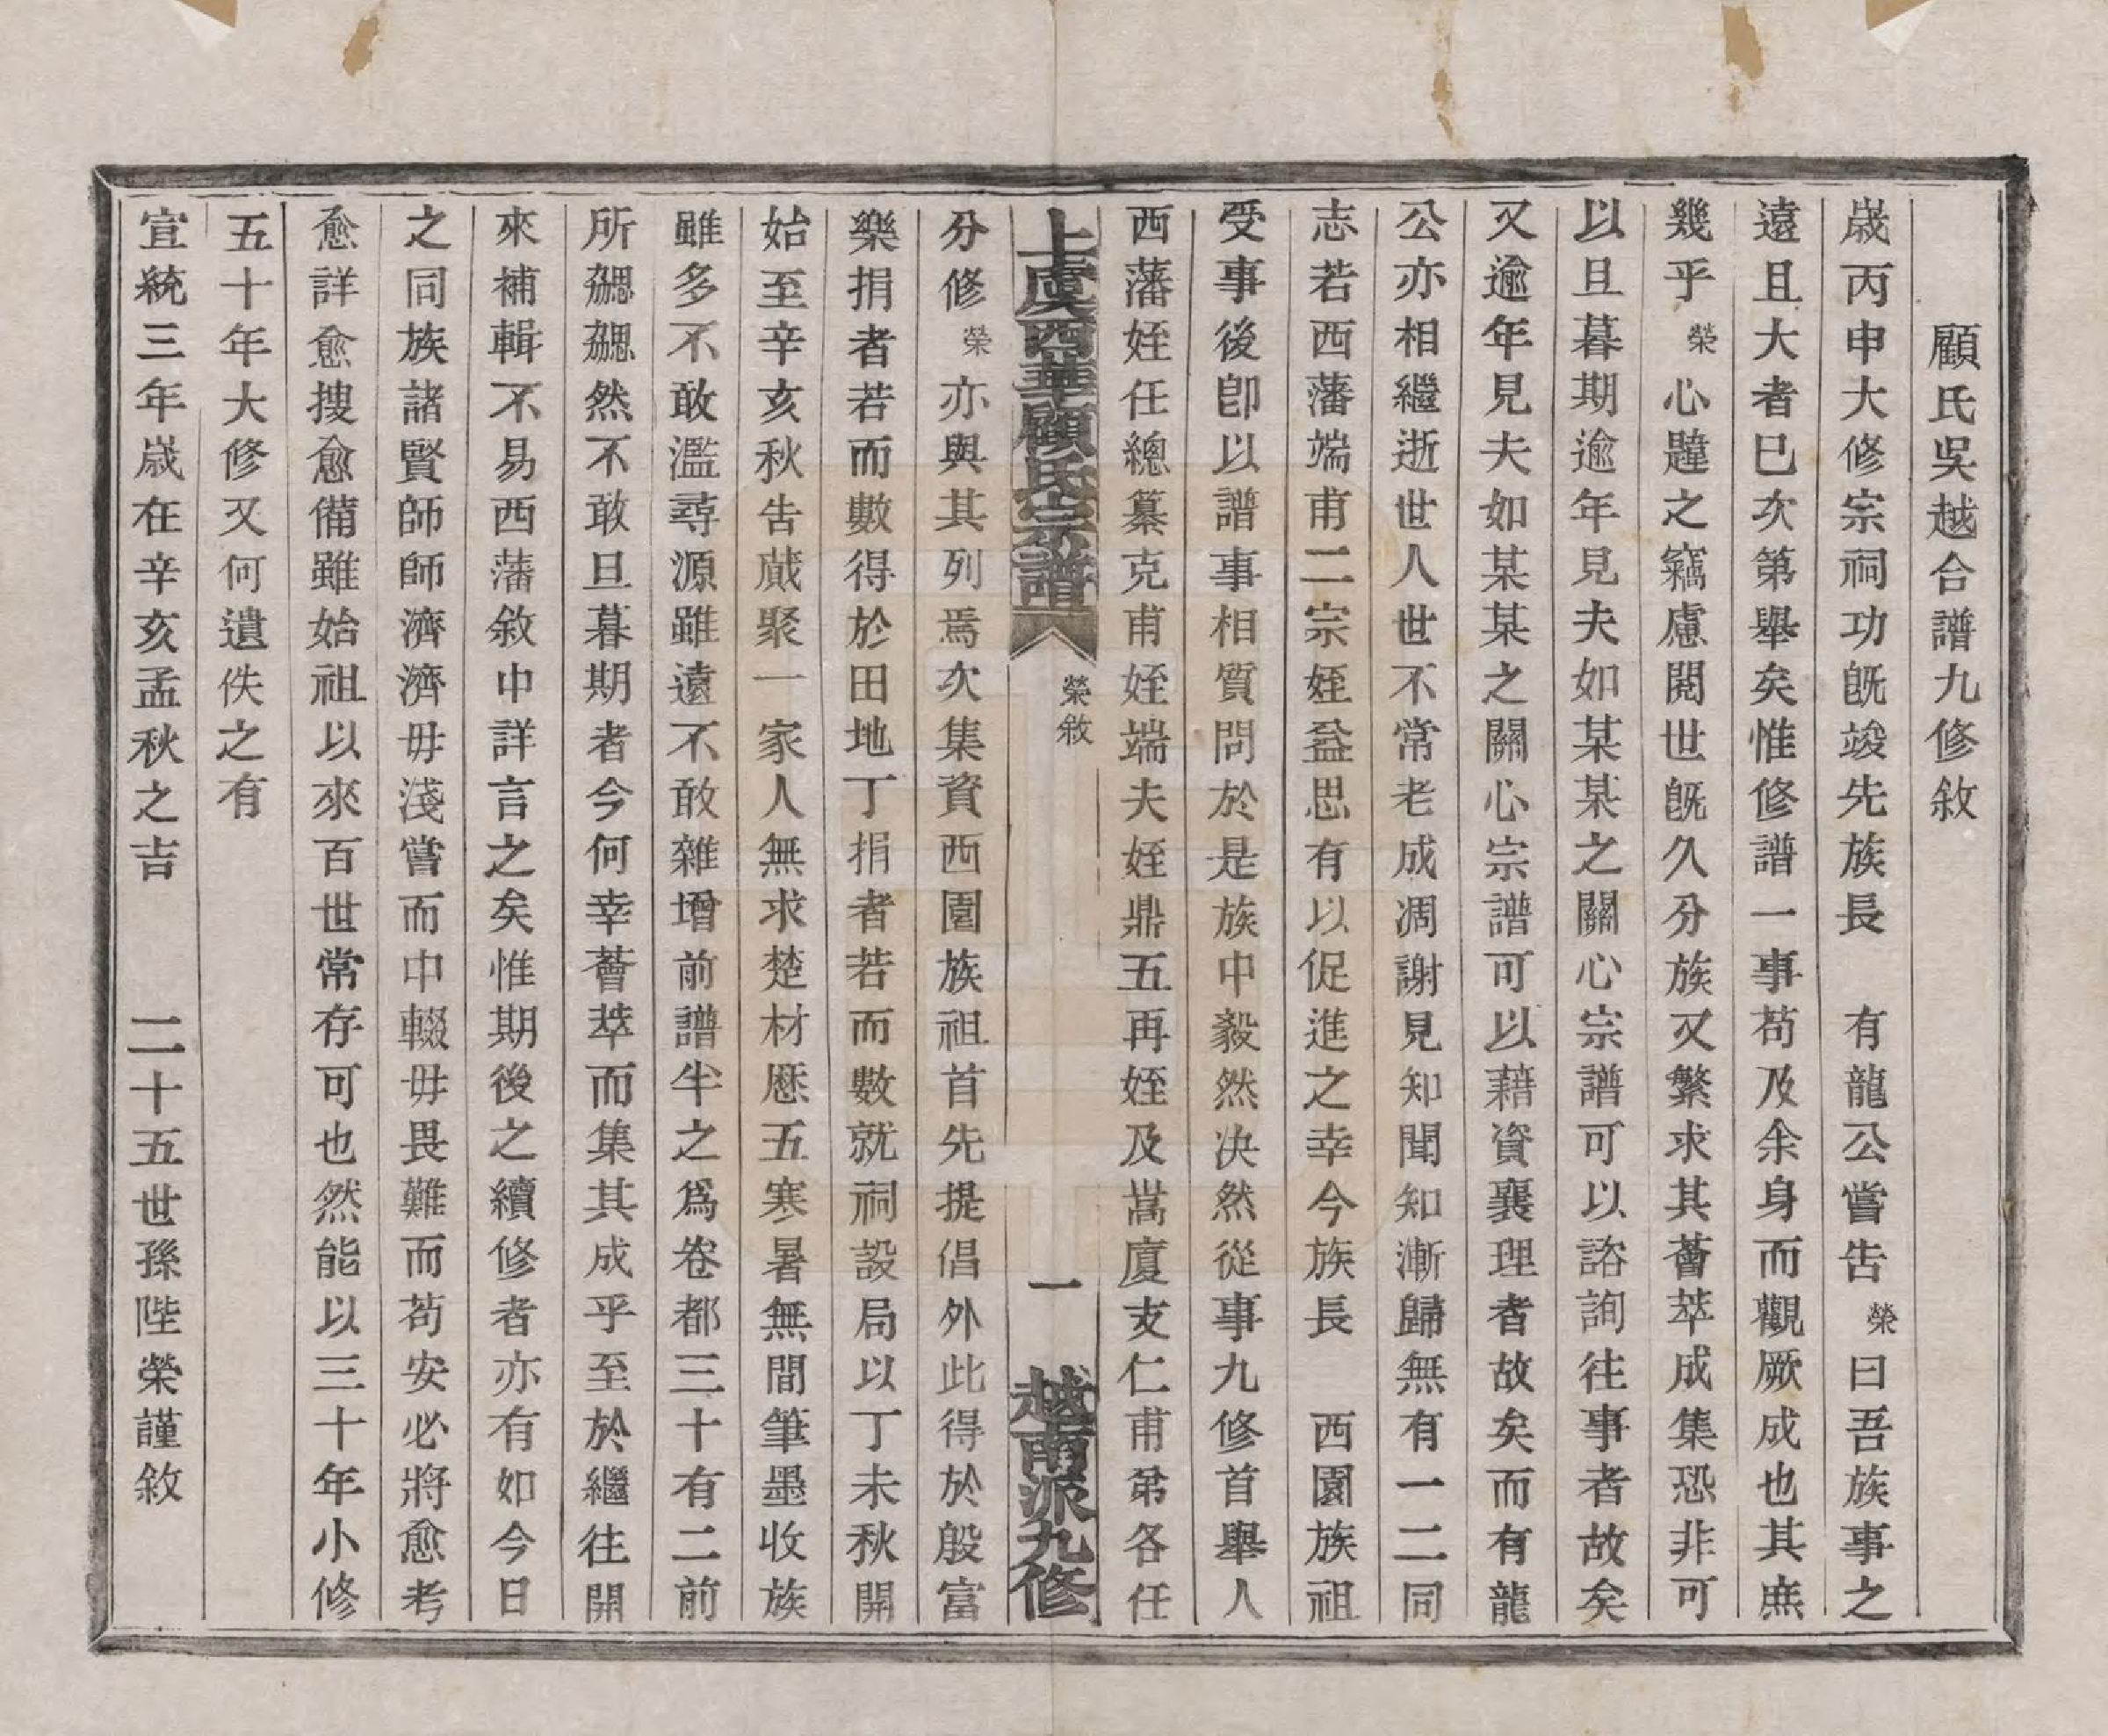 顧氏吳越合譜九修敘
歲丙申大修宗祠功旣竣先族長　有龍公嘗告榮曰吾族事之
遠且大者巳次第舉矣惟修譜一事苟及余身而觀厥成也其庶
幾乎榮心韙之竊慮閱世旣久分族又繁求其薈萃成集恐非可
以旦暮期逾年見夫如某某之關心宗譜可以諮詢往事者故矣
又逾年見夫如某某之關心宗譜可以藉資襄理者故矣而有龍
公亦相繼逝世人世不常老成凋謝見知聞知漸歸無有一二同
志若西藩端甫二宗姪益思有以促進之幸今族長　西園族祖
受事後卽以譜事相質問於是族中毅然決然從事九修首舉人
西藩姪任總纂克甫姪端夫姪鼎五再姪及嵩廈支仁甫弟各任
上虞西華顧氏宗譜　榮敘　一　越南派九修
分修榮亦與其列焉次集資西園族祖首先提倡外此得於殷富
樂捐者若而數得於田地丁捐者若而數就祠設局以丁未秋開
始至辛亥秋告蕆聚一家人無求楚材歷五寒暑無間筆墨收族
雖多不敢濫尋源雖遠不敢雜增前譜半之爲卷都三十有二前
所勰勰然不敢旦暮期者今何幸薈萃而集其成乎至於繼往開
來補輯不易西藩敘中詳言之矣惟期後之續修者亦有如今日
之同族諸賢師師濟濟毋淺嘗而中輟毋畏難而苟安必將愈考
愈詳愈搜愈備雖始祖以來百世常存可也然能以三十年小修
五十年大修又何遺佚之有
宣統三年歲在辛亥孟秋之吉　二十五世孫陛榮謹敘